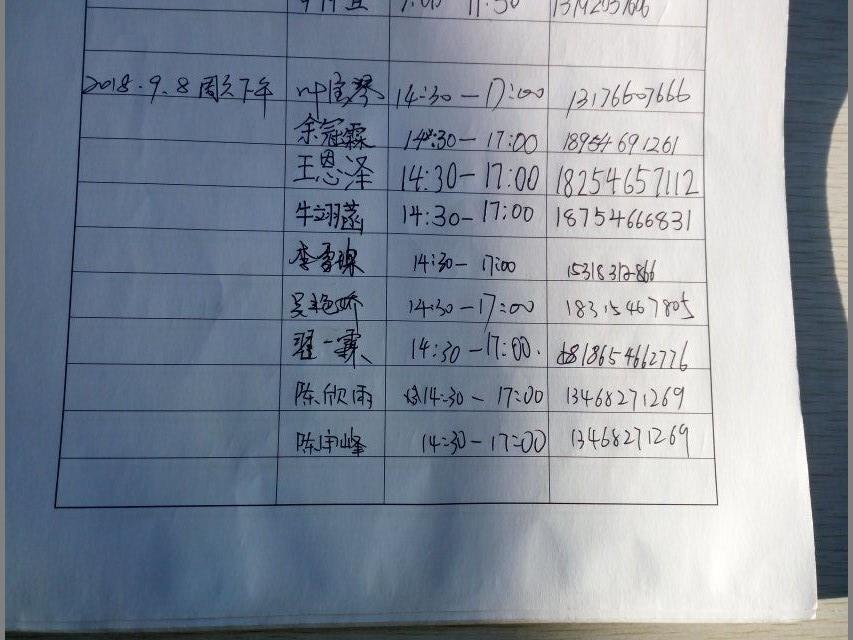 2018.9.8 周六下午 叶宝琴 14:30-17:00 13176607666
余冠霖 14:30-17:00 18954691261
王恩泽 14:30-17:00 18254657112
牛翊菡 14:30-17:00 18754666831
李雪 14:30-17:00 15318312866
吴艳娇 14:30-17:00 18315467805
翟一霖 14:30-17:00. 18654662776
陈欣雨 14:30-17:00 13468271269
陈宇峰 14:30-17:00 13468271269